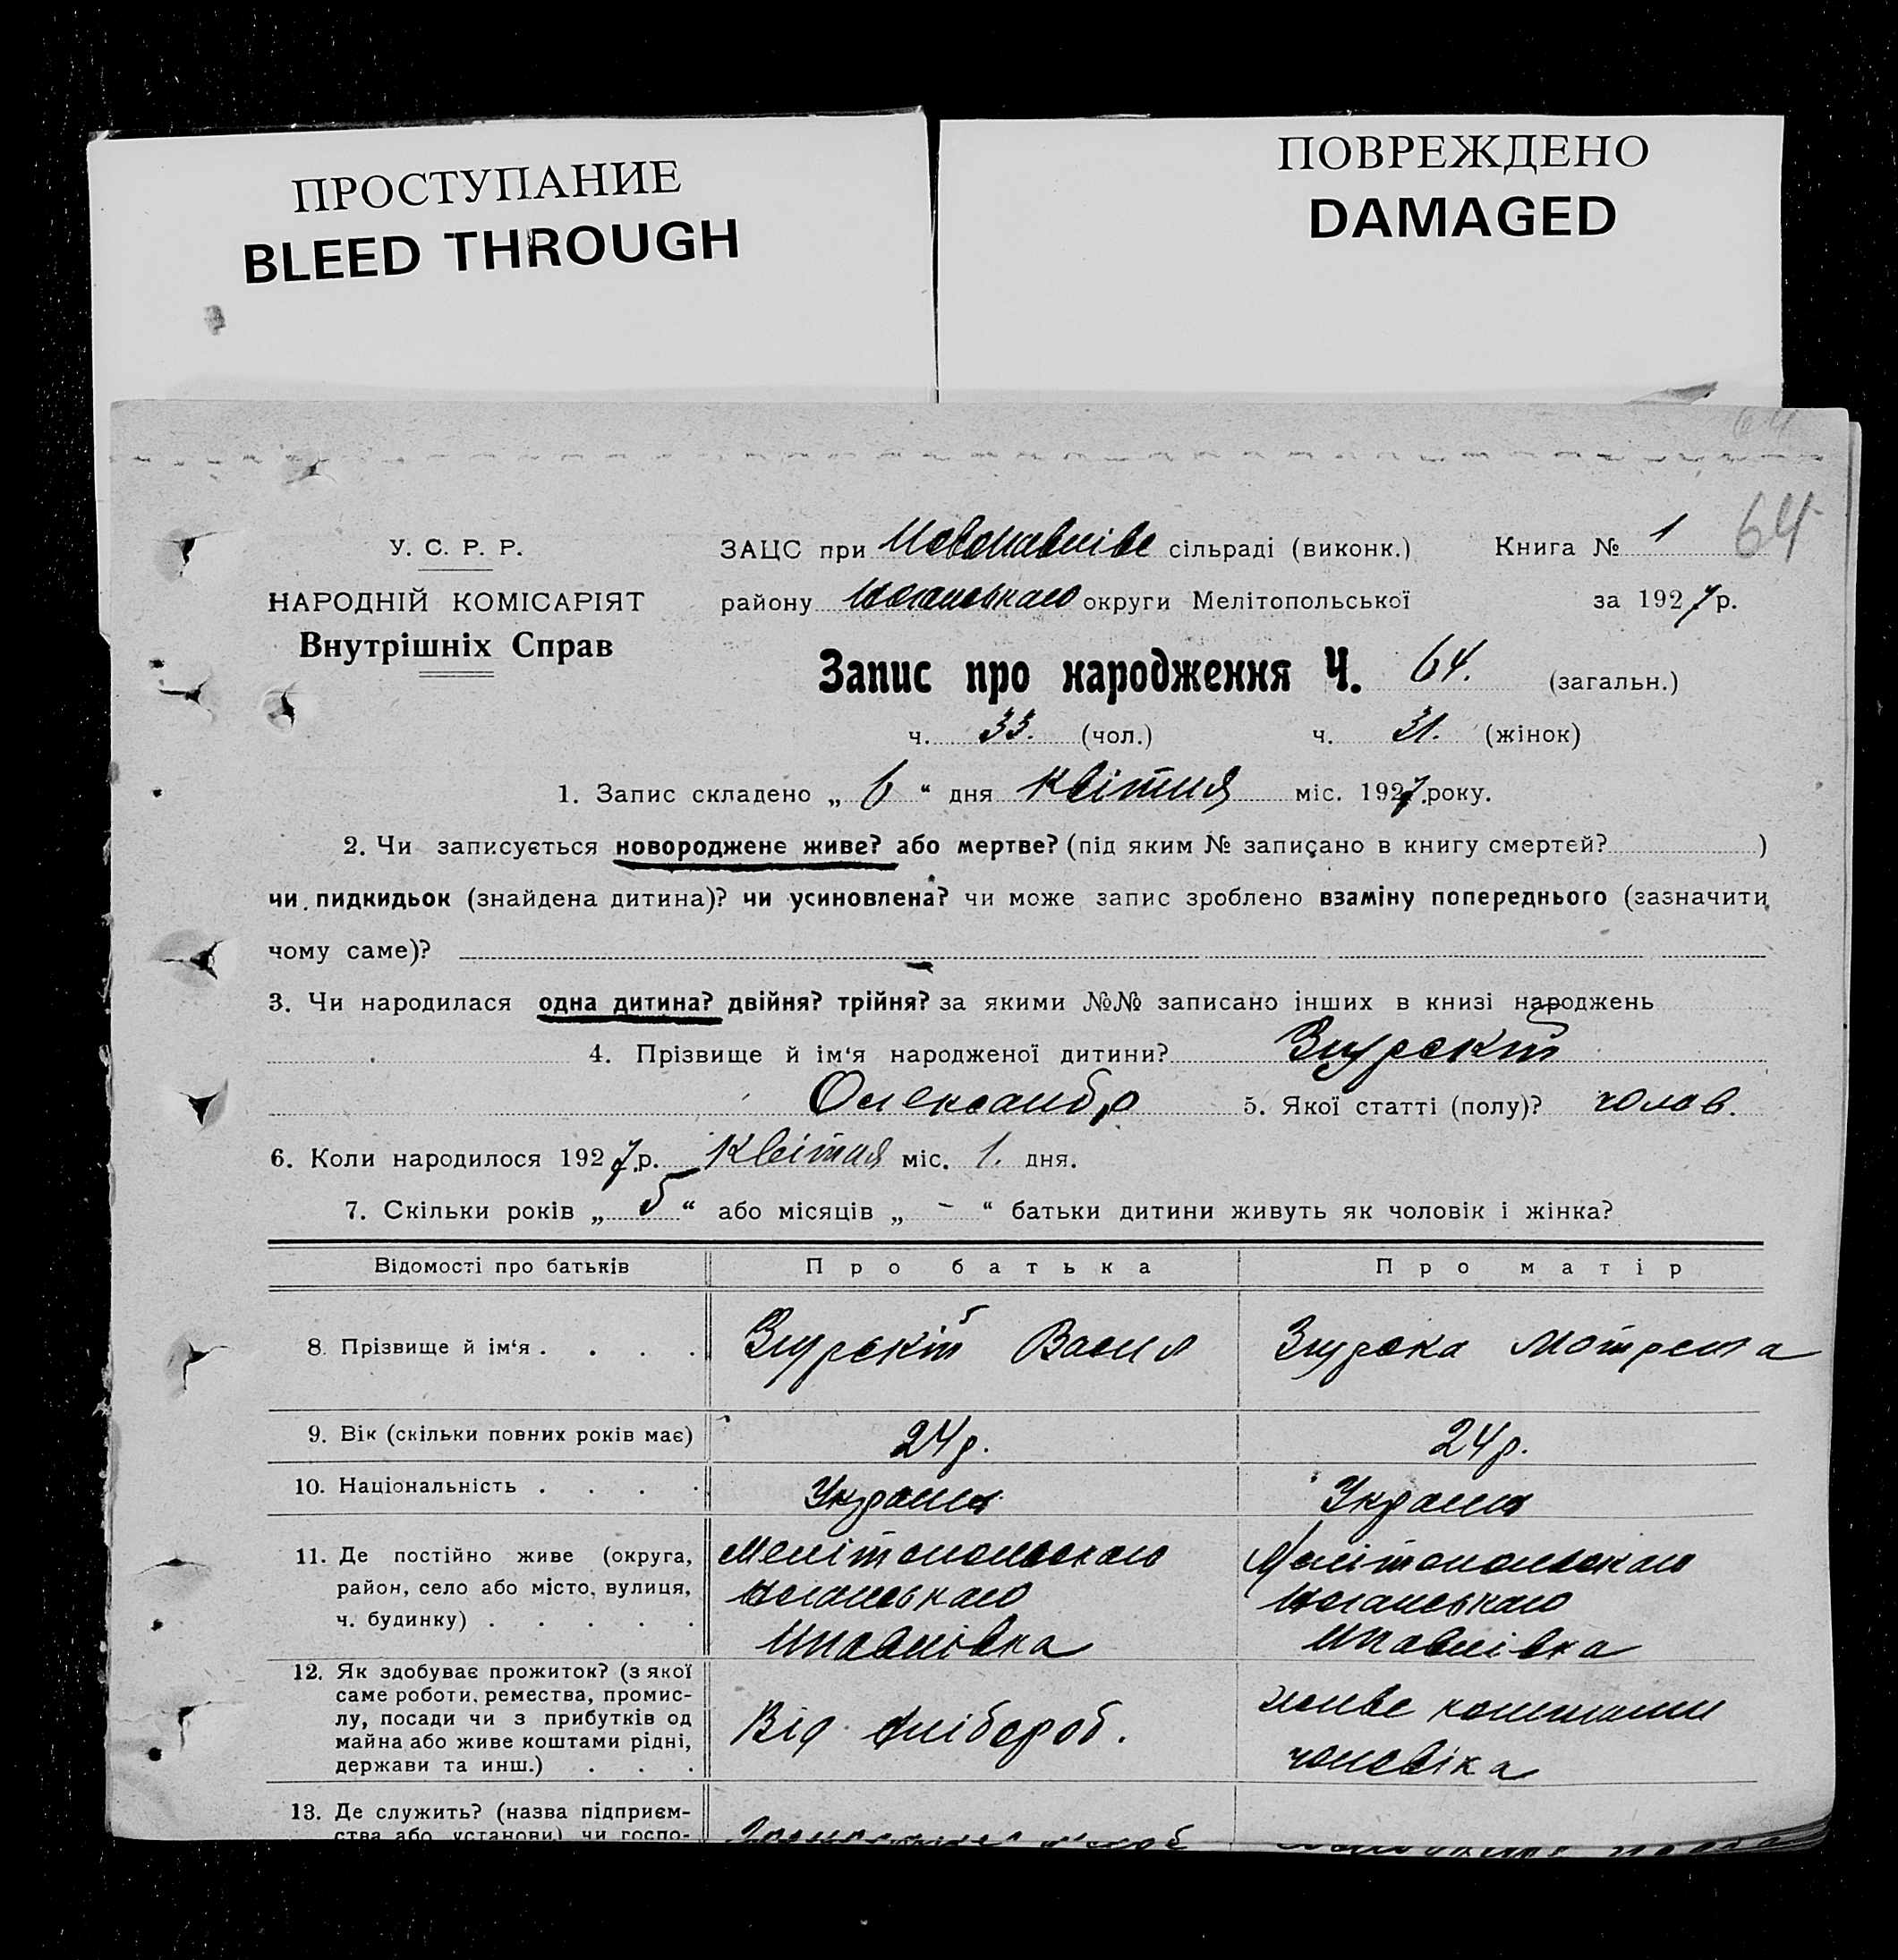 ПРОСТУПАНИЕ
BLEED THROUGH
ПОВРЕЖДЕНО
DAMAGED
64
64
У. С. Р. Р.
НАРОДНІЙ КОМІСАРІЯТ
Внутрішніх Справ
ЗАЦС при Новопавлівс сільраді (виконк.) Книга № 1
району округи Мелітопольської за 1927 р.
Запис про народження Ч. 64. (загальн.)
ч. 33. (чол.) ч. 31. (жінок)
1. Запис складено „ 6 “ дня квітня міс. 1927. року.
2. Чи записується новороджене живе? або мертве? (під яким № записано в книгу смертей? )
чи пидкидьок (знайдена дитина)? чи усиновлена? чи може запис зроблено взаміну попереднього (зазначити
чому саме)?
3. Чи народилася одна дитина? двійня? трійня? за якими №№ записано інших в книзі народжень
4. Прізвище й ім‘я народженої дитини? Згурскій
Олександр 5. Якої статті (полу)? чолов.
6. Коли народилося 1927 р. Квітня міс. 1. дня.
7. Скільки років „ 5 “ або місяців „ - “ батьки дитини живуть як чоловік і жінка?
Відомості про батьків Про батька Про матір
8. Прізвище й ім‘я . . . . Згурскій Васил Згурска Мотрена
9. Вік (скільки повних років має) 24 р. 24 р.
10. Національність . . . . Украин Украин
11. Де постійно живе (округа, район, село або місто, вулиця, ч. будинку) . . . . .
Мелітопольского
Нпавлівка
Мелітопольского
Нпавлівка
12. Як здобуває прожиток? (з якої
саме роботи, ремества, промис-
лу, посади чи з прибутків од
майна або живе коштами рідні,
держави та инш.) . . .
Від хлібороб.
живе коштами
чоловіка
13. Де служить? (назва підприєм-
ства або установи) чи госпо-